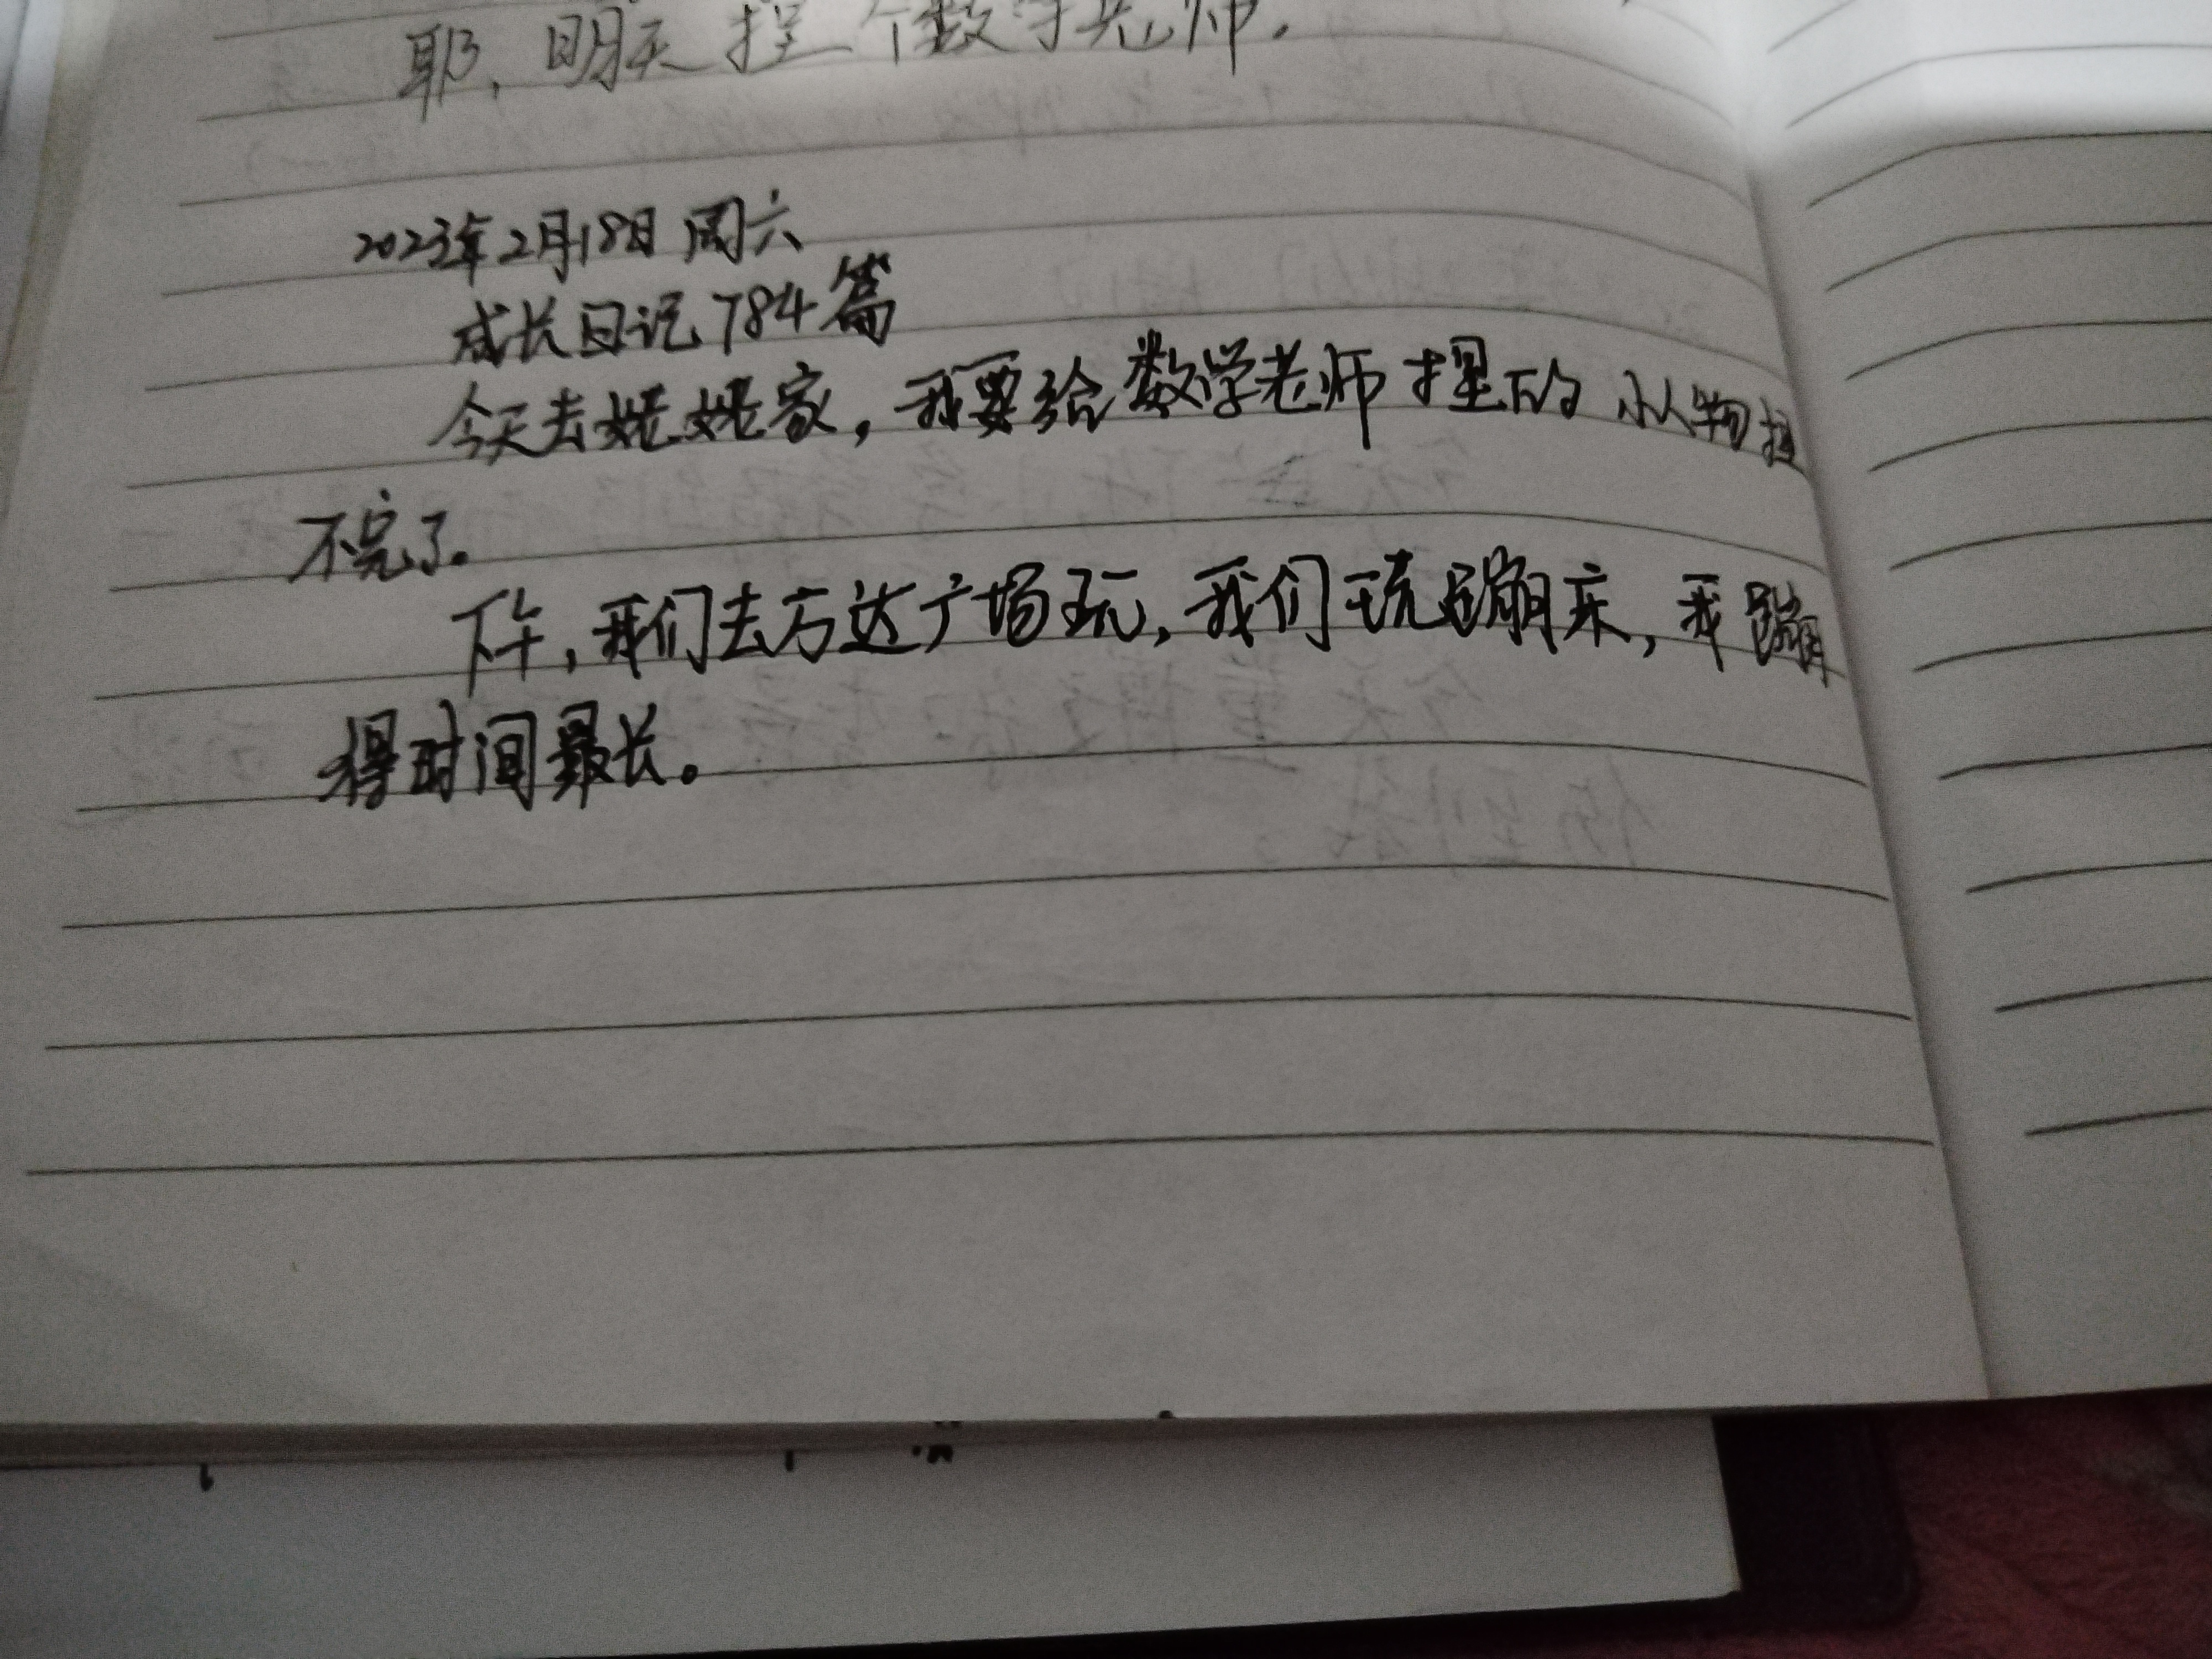 耶，明天捏个数学老师.
2023年2月18日 周六
成长日记784篇
今天去姥姥家，我要给数学老师捏的小人物捏
不完了。
下午，我们去万达广场玩，我们玩蹦床，我蹦
得时间最长。